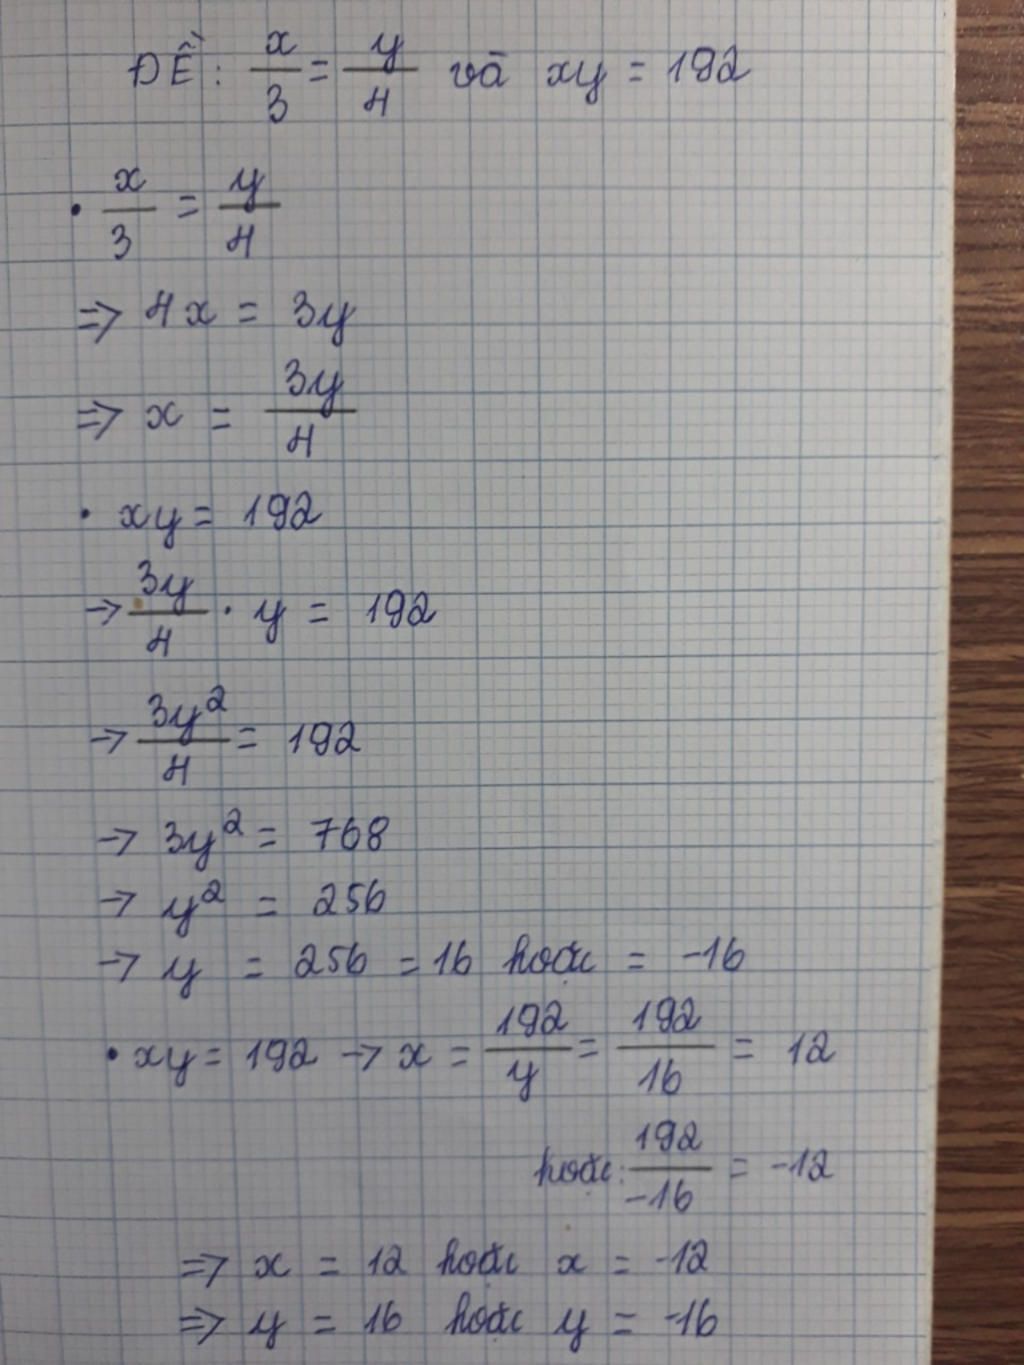 ĐỀ: x/3 = y/4 và xy = 192
• x/3 = y/4
=> 4x = 3y
=> x = 3y/4
• xy = 192
→ 3y/4 . y = 192
→ 3y²/4 = 192
→ 3y² = 768
→ y² = 256
→ y = 256 = 16 hoặc = -16
• xy = 192 → x = 192/y = 192/16 = 12
hoặc: 192/-16 = -12
=> x = 12 hoặc x = -12
=> y = 16 hoặc y = -16